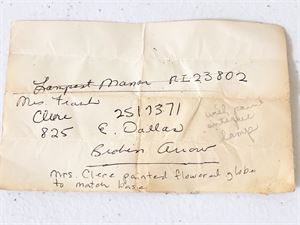 Lampest Manor RI23802
Mrs Frank
Clere 2517371
825 E. Dallas
Broken Arrow
will paint
antique
lamp
Mrs. Clere painted flowered globe
to match base